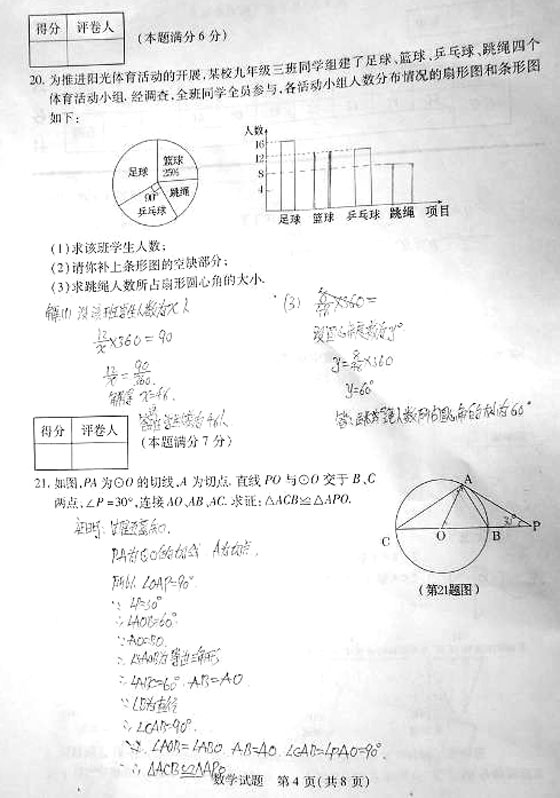 得分 评卷人
(本题满分6分)
20. 为推进阳光体育活动的开展,某校九年级三班同学组建了足球、篮球、乒乓球、跳绳四个
体育活动小组. 经调查,全班同学全员参与,各活动小组人数分布情况的扇形图和条形图
如下:
足球 篮球 25% 跳绳 90° 乒乓球
人数
16
12
8
4
足球 篮球 乒乓球 跳绳 项目
(1)求该班学生人数;
(2)请你补上条形图的空缺部分;
(3)求跳绳人数所占扇形圆心角的大小.
解(1) 设该班学生人数为x人
12/x ×360=90
12/x = 90/360
x=48.
(3) ×360=
y= ×360
y=60°
得分 评卷人
(本题满分7分)
21. 如图,PA为⊙O的切线,A为切点. 直线PO与⊙O交于B、C
两点,∠P=30°,连接AO、AB、AC. 求证:△ACB≌△APO.
A
C O B 30° P
(第21题图)
证明:
PA为⊙O的切线 A为切点.
所以 ∠OAP=90°
∵ ∠P=30°
∴ ∠AOB=60°
∵ AO=BO.
∴ △AOB为等边三角形
∴ ∠ABC=60°. AB=AO
∵ CB为直径
∴ ∠CAB=90°.
∵ ∠AOB=∠ABO. AB=AO. ∠CAB=∠PAO=90°.
∴ △ACB≌△APO
数学试题 第4页(共8页)